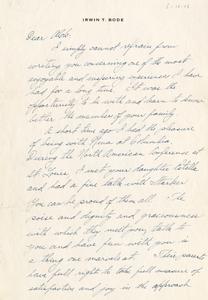 IRWIN T. BODE
Dear Aldo:
I simply cannot refrain from
writing you concerning one of the most
enjoyable and inspiring experiences I have
had for a long time. It was the
opportunity to be with and learn to know
better the members of your family.
A short time ago I had the pleasure
of being with Nina at Columbia.
During the North American Conference at
St Louis, I met your daughter Estella
and had a fine talk with Starker.
You can be proud of them all. The
poise and dignity and graciousness
with which they meet you, talk to
you and have fun with you is
a thing one marvels at. Their parents
have full right to take full measure of
satisfaction and joy in the approach